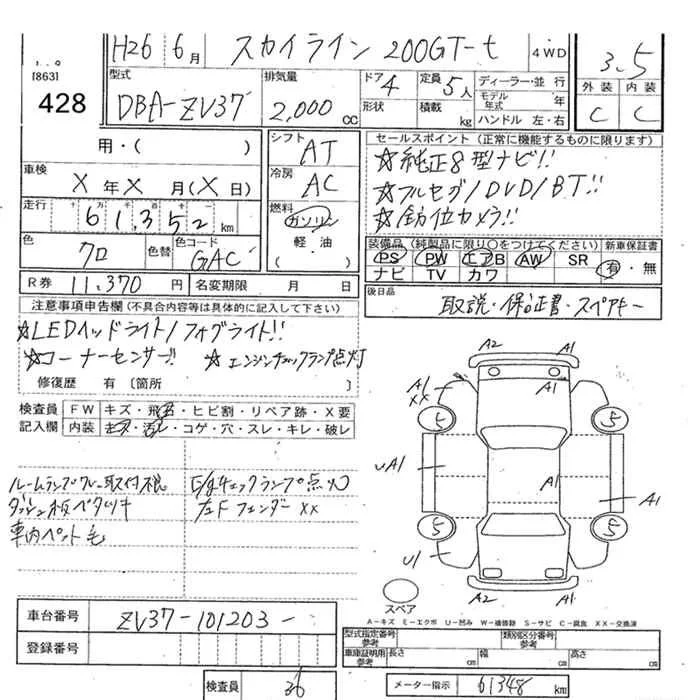 H26 6月 スカイライン 200GT-t 4WD
3.5
[863]
428
型式 DBA-ZV37
排気量 2,000 cc
ドア 4 定員 5人
形状 積載 kg
ディーラー・並 行
モデル年式 年
ハンドル 左・右
外装 内装
C C
用・( )
車検 X 年 X 月(X 日)
走行 十 万 千 百 十 一
61,352 km
色 クロ 色替 色コード GAC
シフト AT
冷房 AC
燃料 ガソリン
軽油
( )
セールスポイント (正常に機能するものに限ります)
☆純正8型ナビ!!
☆フルセグ/DVD/BT!!
☆全方位カメラ!!
装備品 (純製品に限り○をつけてください) 新車保証書
PS PW エアB AW SR 有・無
ナビ TV カワ
R券 11,370 円 名変期限 月 日
後日品 取説・保証書・スペアキー
注意事項申告欄 (不具合内容等は具体的に記入して下さい)
☆LEDヘッドライト/フォグライト!!
☆コーナーセンサー!! ☆エンジンチェックランプ点灯
修復歴 有 [箇所 ]
検査員記入欄 FW キズ・飛石・ヒビ割・リペア跡・X要
内装 キズ・汚レ・コゲ・穴・スレ・キレ・破レ
ルームランプカバー取付不良 E/gチェックランプ点灯
ダッシュ板ベタツキ 左Fフェンダー XX
車内ペット毛
A2 A1
A1 XX A1 A1
5 5
uA1 A1 A1
5 5
U1
A2 A1
スペア
A-キズ E-エクボ U-凹み W-補修跡 S-サビ C-腐食 XX-交換済
車台番号 ZV37-101203-
登録番号
型式指定番号 参考 類別区分番号 参考
車庫証明用 参考 長さ cm 幅 cm 高さ cm
検査員 36
メーター指示 61348 km